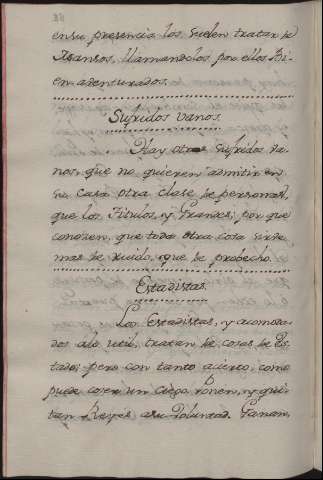 en su presencia los suelen tratar de
Mansos, llamandolos por ellos Bi-
en abenturados.
Sufridos vanos.
Hay otros sufridos va-
nos, que no quieren admitir en
su Casa otra clase de personas,
que los Titulos, y Grandes; por que
conocen, que toda otra cosa sirve
mas de ruido, que de probecho.
Estadistas.
Los Estadistas, y acomoda-
dos ale util, tratan de cosas de Es-
tado; pero con tanto acierto, como
puede coser un Ciego. Ponen, y qui-
tan Reyes asu voluntad. Ganan,